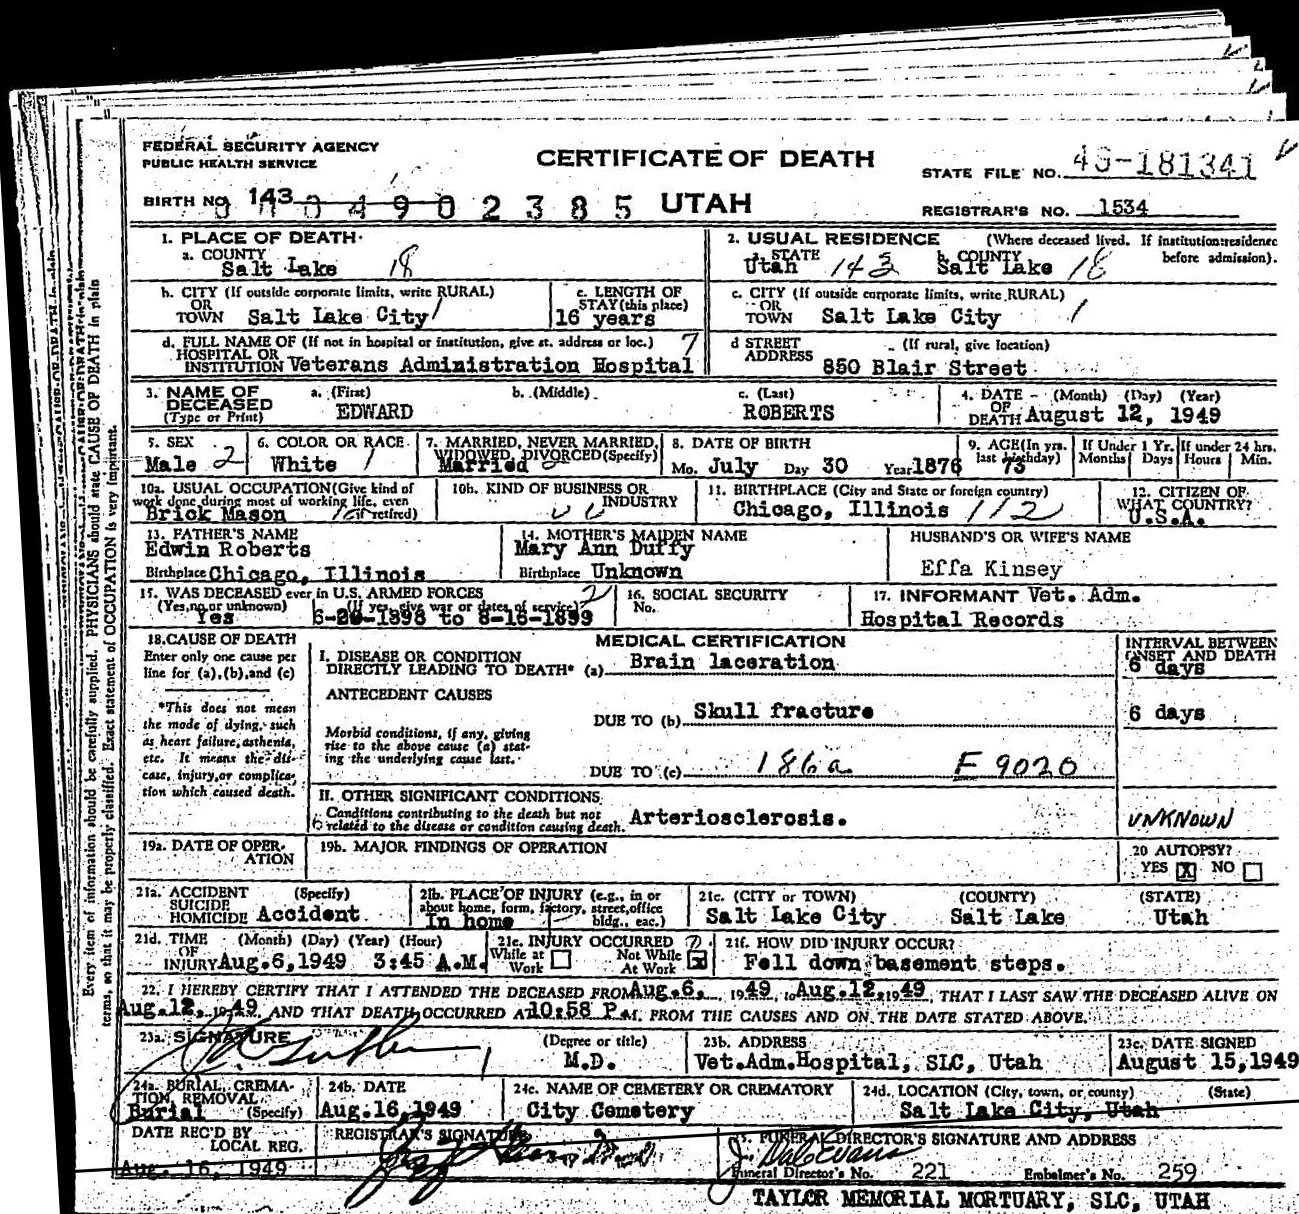 FEDERAL SECURITY AGENCY
PUBLIC HEALTH SERVICE
CERTIFICATE OF DEATH
STATE FILE NO. 49-181341
BIRTH NO. 143
0 1 0 4 9 0 2 3 8 5 UTAH
REGISTRAR'S NO. 1534
1. PLACE OF DEATH
a. COUNTY
Salt Lake 18
2. USUAL RESIDENCE (Where deceased lived. If institution: residence before admission).
a. STATE Utah 143 b. COUNTY Salt Lake 18
b. CITY (If outside corporate limits, write RURAL)
OR TOWN Salt Lake City 1
c. LENGTH OF STAY (this place)
16 years
c. CITY (If outside corporate limits, write RURAL)
OR TOWN Salt Lake City 1
d. FULL NAME OF (If not in hospital or institution, give st. address or loc.) 7
HOSPITAL OR INSTITUTION Veterans Administration Hospital
d STREET ADDRESS (If rural, give location)
850 Blair Street
3. NAME OF DECEASED (Type or Print)
a. (First) EDWARD
b. (Middle)
c. (Last) ROBERTS
4. DATE OF DEATH (Month) (Day) (Year)
August 12, 1949
5. SEX
Male 2
6. COLOR OR RACE
White 1
7. MARRIED, NEVER MARRIED, WIDOWED, DIVORCED (Specify)
Married 2
8. DATE OF BIRTH
Mo. July Day 30 Year 1876
9. AGE (In yrs. last birthday)
73
If Under 1 Yr. Months Days
If under 24 hrs. Hours Min.
10a. USUAL OCCUPATION (Give kind of work done during most of working life, even if retired)
Brick Mason
10b. KIND OF BUSINESS OR INDUSTRY
11. BIRTHPLACE (City and State or foreign country)
Chicago, Illinois 112
12. CITIZEN OF WHAT COUNTRY?
U.S.A.
13. FATHER'S NAME
Edwin Roberts
Birthplace Chicago, Illinois
14. MOTHER'S MAIDEN NAME
Mary Ann Duffy
Birthplace Unknown
HUSBAND'S OR WIFE'S NAME
Effa Kinsey
15. WAS DECEASED ever in U.S. ARMED FORCES
(Yes, no, or unknown) (If yes, give war or dates of service) 2
Yes 6-20-1898 to 8-16-1899
16. SOCIAL SECURITY
No.
17. INFORMANT Vet. Adm.
Hospital Records
18. CAUSE OF DEATH
Enter only one cause per line for (a), (b), and (c)
*This does not mean the mode of dying, such as heart failure, asthenia, etc. It means the disease, injury, or complication which caused death.
MEDICAL CERTIFICATION
INTERVAL BETWEEN ONSET AND DEATH
I. DISEASE OR CONDITION
DIRECTLY LEADING TO DEATH* (a) Brain laceration
6 days
ANTECEDENT CAUSES
DUE TO (b) Skull fracture
6 days
Morbid conditions, if any, giving rise to the above cause (a) stating the underlying cause last.
DUE TO (c) 186a F 9020
II. OTHER SIGNIFICANT CONDITIONS
Conditions contributing to the death but not related to the disease or condition causing death. Arteriosclerosis.
UNKNOWN
19a. DATE OF OPERATION
19b. MAJOR FINDINGS OF OPERATION
20 AUTOPSY?
YES X NO
21a. ACCIDENT SUICIDE HOMICIDE (Specify)
Accident
21b. PLACE OF INJURY (e.g., in or about home, form, factory, street, office bldg., eac.)
In home
21c. (CITY or TOWN) (COUNTY) (STATE)
Salt Lake City Salt Lake Utah
21d. TIME OF INJURY (Month) (Day) (Year) (Hour)
Aug.6,1949 3:45 A.M.
21e. INJURY OCCURRED
While at Work Not While At Work X
21f. HOW DID INJURY OCCUR?
Fell down basement steps.
22. I HEREBY CERTIFY THAT I ATTENDED THE DECEASED FROM Aug.6, 1949, to Aug.12, 1949, THAT I LAST SAW THE DECEASED ALIVE ON
Aug.12, 1949, AND THAT DEATH OCCURRED AT 10:58 P.M. FROM THE CAUSES AND ON THE DATE STATED ABOVE.
23a. SIGNATURE
(Degree or title)
M.D.
23b. ADDRESS
Vet.Adm.Hospital, SLC, Utah
23c. DATE SIGNED
August 15,1949
24a. BURIAL, CREMATION, REMOVAL (Specify)
Burial
24b. DATE
Aug.16,1949
24c. NAME OF CEMETERY OR CREMATORY
City Cemetery
24d. LOCATION (City, town, or county) (State)
Salt Lake City, Utah
DATE REC'D BY LOCAL REG.
Aug. 16, 1949
REGISTRAR'S SIGNATURE
25. FUNERAL DIRECTOR'S SIGNATURE AND ADDRESS
J. Dale Evans
Funeral Director's No. 221 Embalmer's No. 259
TAYLOR MEMORIAL MORTUARY, SLC, UTAH
Every item of information should be carefully supplied. PHYSICIANS should state CAUSE OF DEATH in plain
terms, so that it may be properly classified. Exact statement of OCCUPATION is very important.